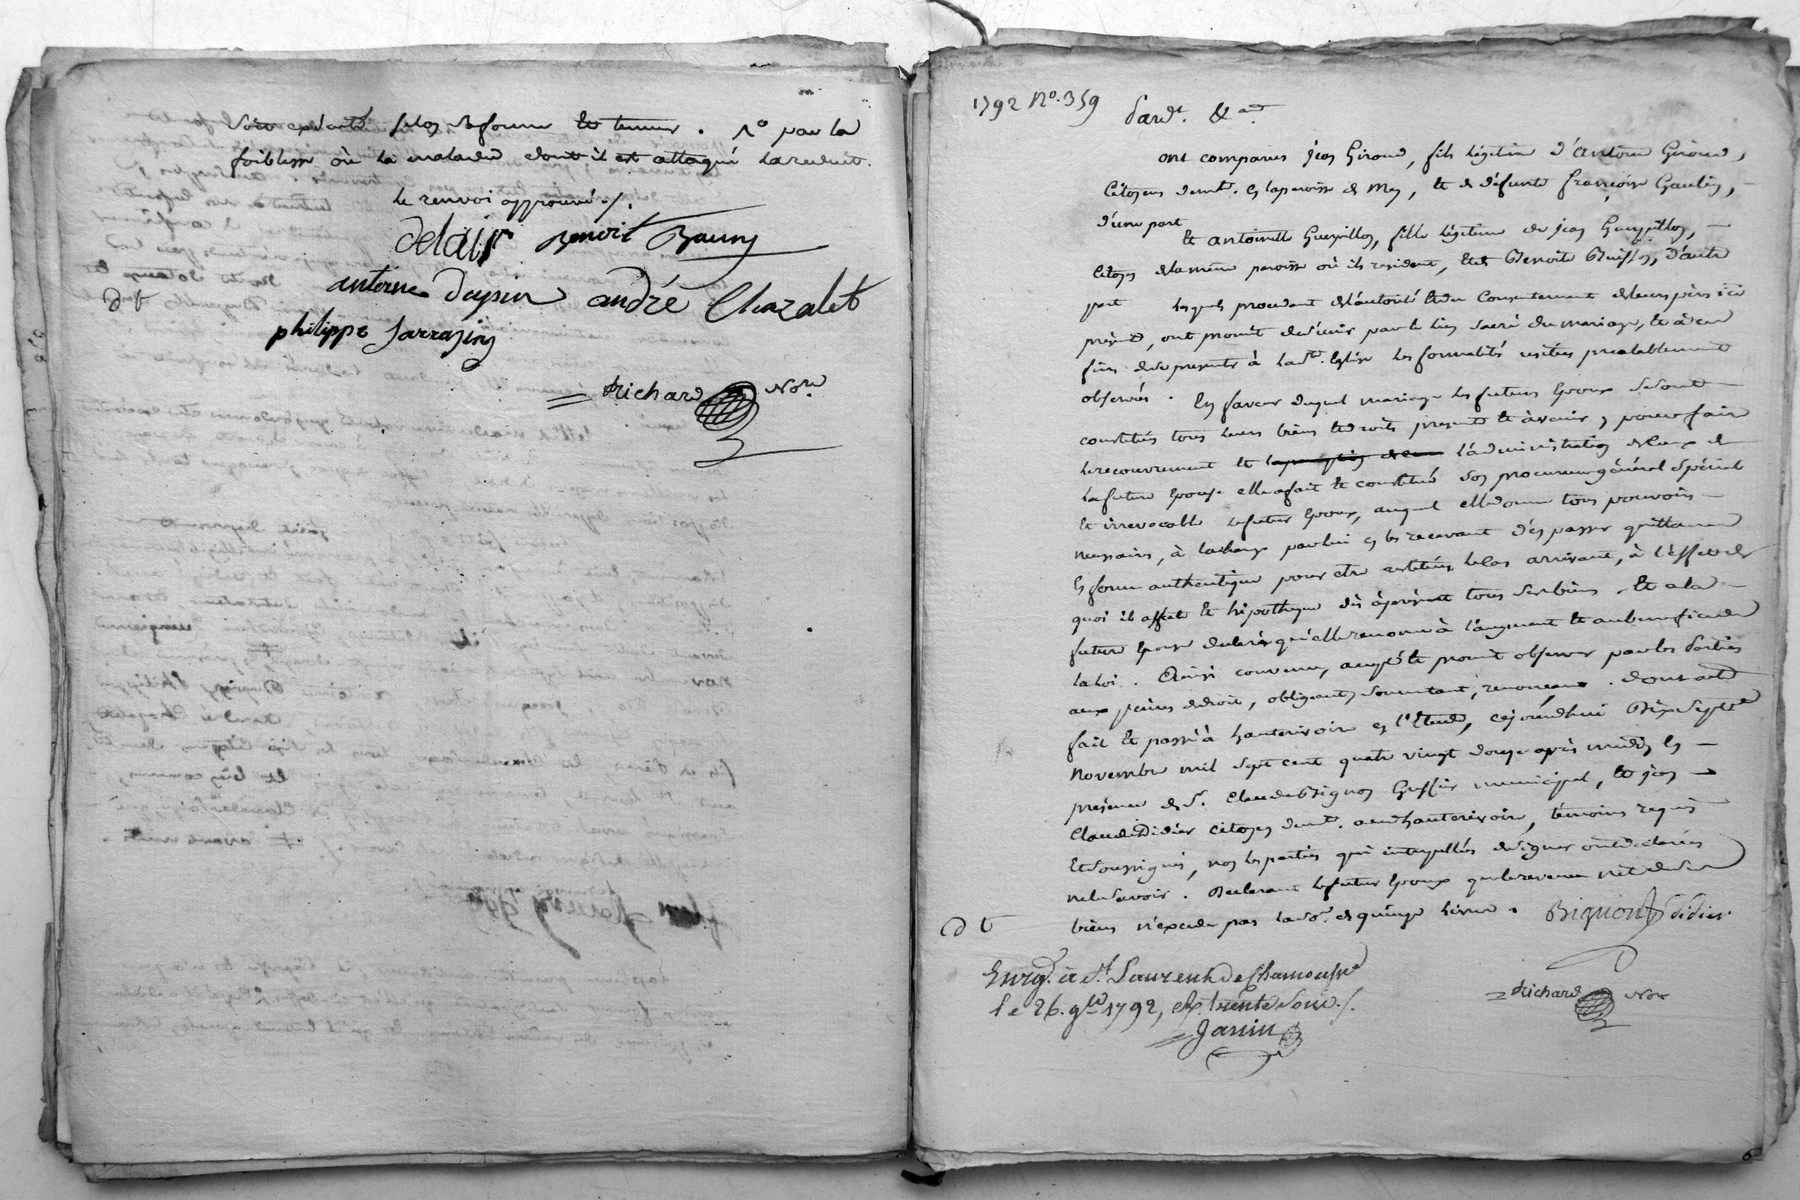 Soit exécuté selon sa forme et teneur. No par la
foiblesse où la maladie dont il est attaqué la reduit.
le renvoi approuvé ./.
Delair Benoit Bauny
antoine Dupin andré Chazalet
philippe Sarrasin
Richard Nore
1792 No. 359
Pardt. &a.
ont comparus jean Giroud, fils légitime d'antoine Giroud,
Citoyen demt. en la paroisse de Mey, et de défunte françoise Gaulin,
d'une part
et antoinette Guerpillon, fille légitime de jean Guerpillon,
Citoyen de la même paroisse où ils resident, et de Benoite Buisson, d'autre
part lesquels procedant de l'autorité et du Consentement de leurs pères ici
présents, ont promit de s'unir par le lien sacré du mariage, et à ces
fins de se presenter à la Ste. Eglise les formalités usitées prealablement
observées. En faveur duquel mariage les futurs époux se sont
constitués tous leurs biens et droits presents et à venir, pour faire
le recouvrement et l'administration desquels
la future épouse elle a fait et constitué son procureur général spécial
et irrevocable le futur époux, auquel elle donne tous pouvoirs
necessaires, à la charge par lui en les recevant d'en passer quittance
en forme authentique pour etre restitués le cas arrivant, à l'effet de
quoi il affecte et hipotheque dès à présent tous ses biens. Et a la
future épouse declaré qu'elle renonce à l'augment et au benefice de
la loi. Ainsi convenu, accepté et promit observer par les parties
aux peines de droit, obligeant, soumettant, renonceant. Dont acte
fait et passé à hauterivoire en l'Etude, cejourd'hui Dix Sept
Novembre mil sept cent quatre vingt douze après midy en
présence de Sr. Claude Bignon Greffier municipal, et jean
Claude Didier citoyen demt. audt hauterivoire, témoins requis
et soussignés, non les parties qui interpellées de signer ont déclarées
ne le savoir. Declarant le futur époux que le revenu net de ses
biens n'excede pas la so. de quinze livres.
Bignon Didier
Enrg. à St Laurent de Chamousset
le 26. 9bre 1792, R. trente sous ./.
Janin
Richard Nore